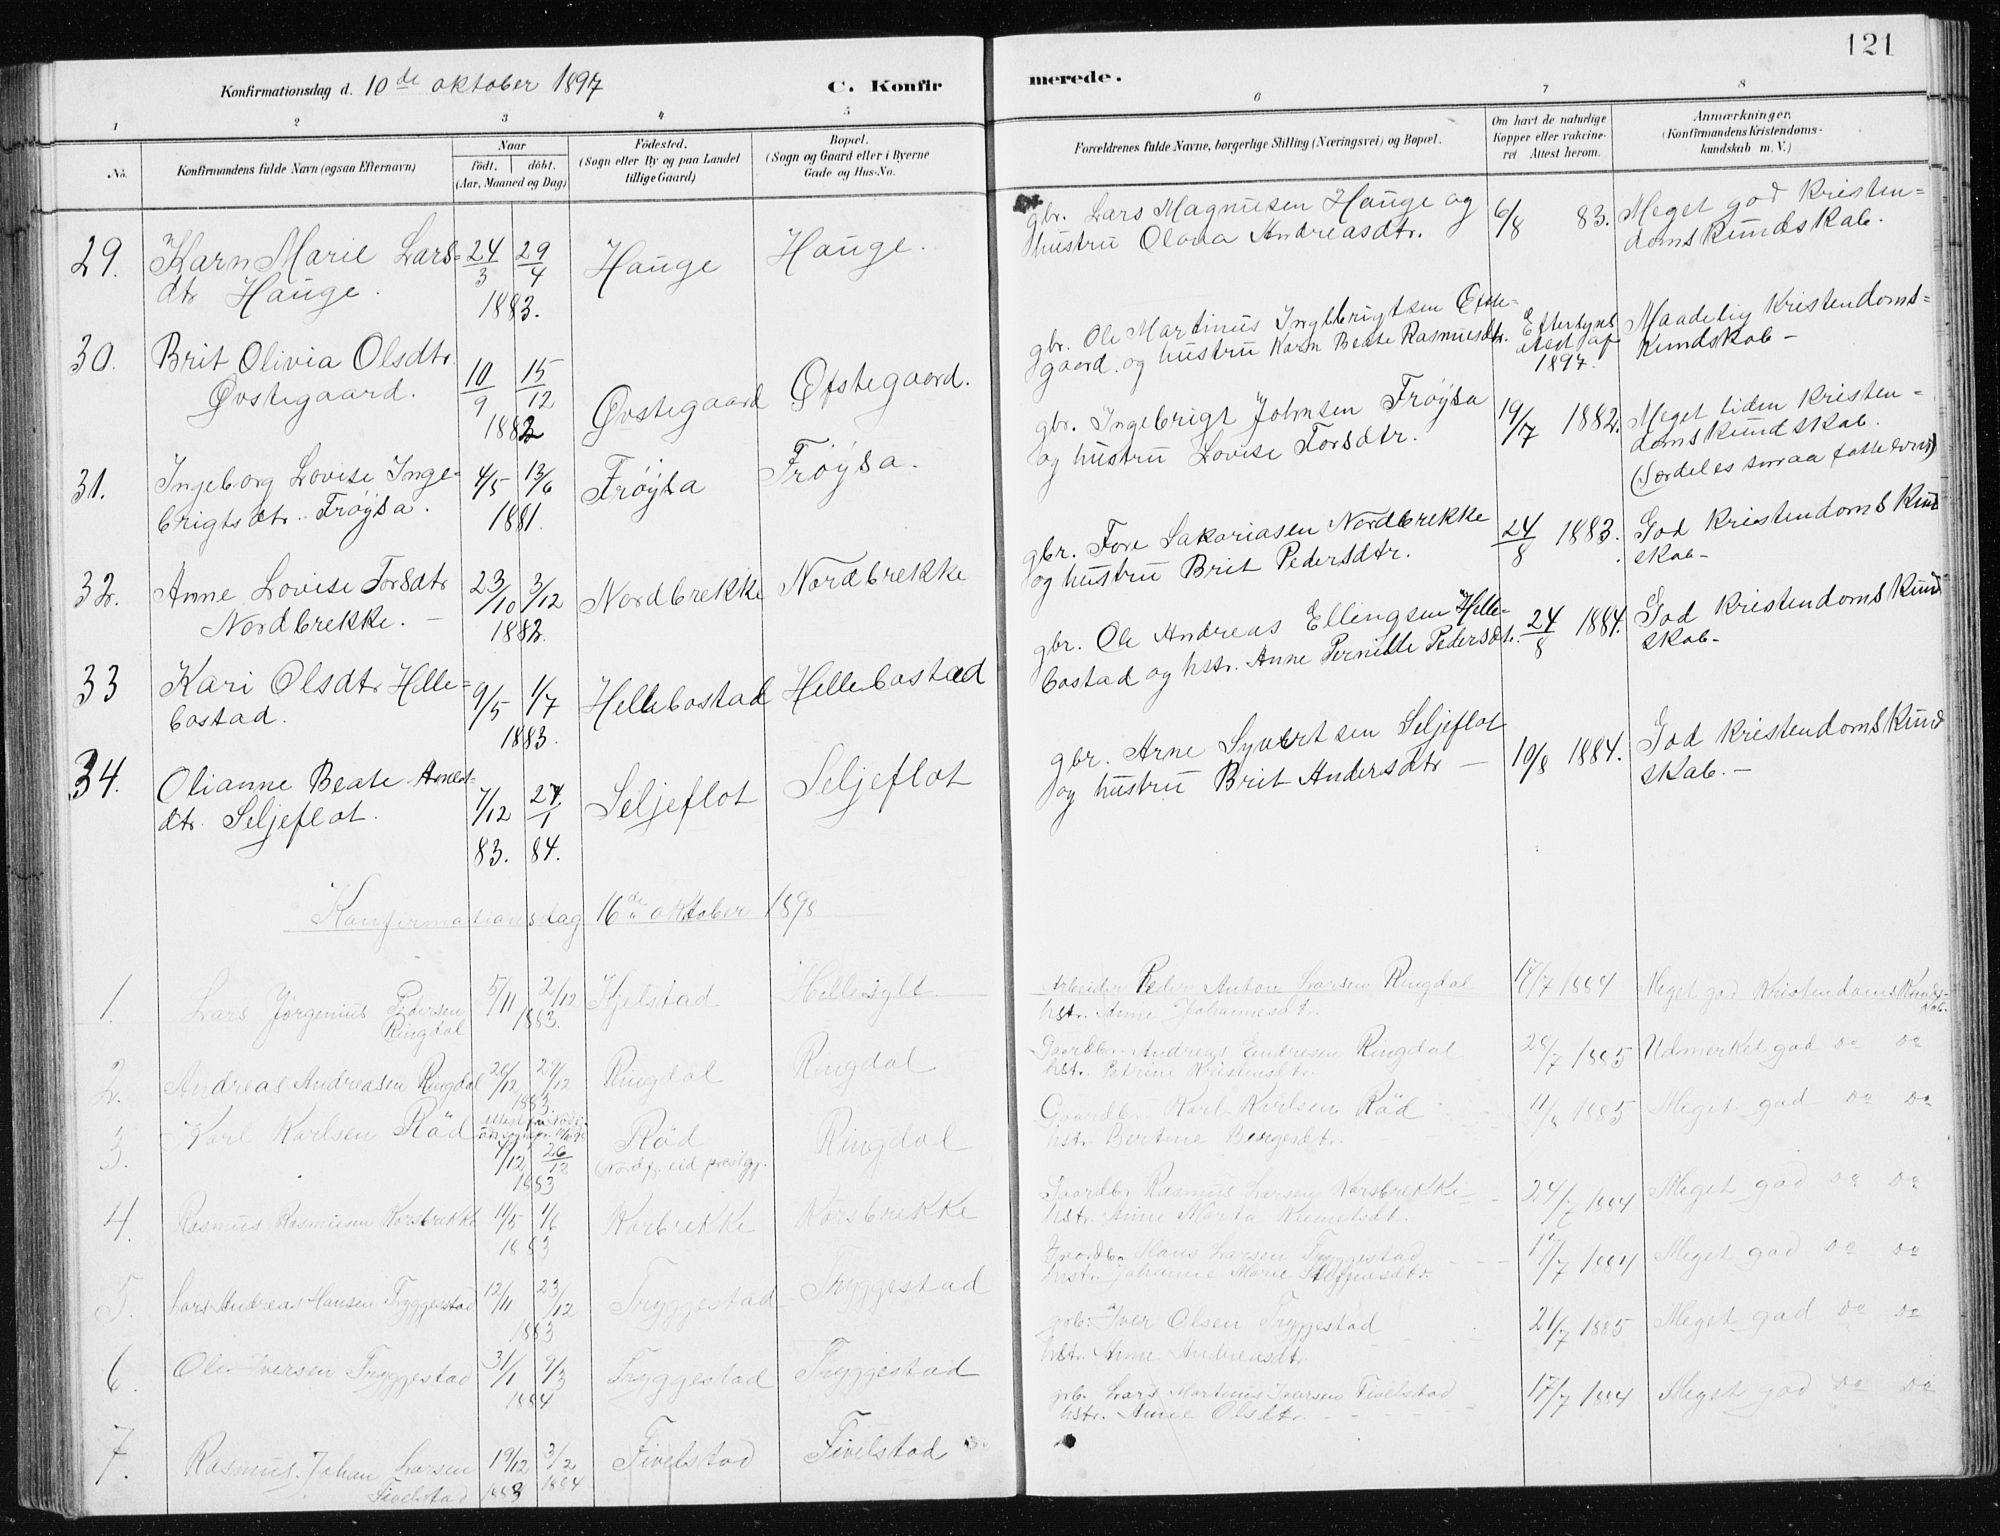 121
Konfirmationsdag d. 10de oktober 1897
C. Konfirmerede.
1 2 3 4 5 6 7 8
No.
Konfirmandens fulde Navn (ogsaa Efternavn)
Naar
födt. döbt.
(Aar, Maaned og Dag)
Födested.
(Sogn eller By og paa Landet
tillige Gaard)
Bopæl.
(Sogn og Gaard eller i Byerne
Gade og Hus-No.
Forældrenes fulde Navne, borgerlige Stilling (Næringsvei) og Bopæl.
Om havt de naturlige
Kopper eller vakcine-
ret Attest herom.
Anmærkninger.
(Konfirmandens Kristendoms-
kundskab m. V.)
29. Karn Marie Lars=
dtr Hauge.
24/3 29/4
1883.
Hauge Hauge.
gbr. Lars Magnusen Hauge og
hustru Olava Andreasdtr.
6/8 83.
Meget god Kristen=
domskundskab.
30. Brit Olivia Olsdtr
Øvstegaard.
10/9 15/12
1882
Øvstegaard Øfstegaard.
gbr. Ole Martinus Ingebrigtsen Øfste-
gaard. og hustru Karn Beate Rasmusdtr.
Eftersyns
atest af
1897.
Maadelig Kristendoms=
kundskab -
31. Ingeborg Lovise Inge=
brigtsdtr. Frøysa.
4/5 13/6
1881.
Frøysa Frøysa.
gbr. Ingebrigt Johnsen Frøysa
og hustru Lovise Torsdtr.
19/7 1882.
Meget liden Kristen=
domskundskab.
(Særdeles smaa fatteevner)
32. Anne Lovise Torsdtr
Nordbrekke. -
23/10 3/12
1882.
Nordbrekke Nordbrekke
gbr. Tore Sakariasen Nordbrekke
og hustru Brit Pedersdtr.
24/8 1883.
God Kristendomskund
skab-
33 Kari Olsdtr Helle=
bostad.
9/5 1/7
1883.
Hellebostad Hellebostad
gbr. Ole Andreas Ellingsen Helle-
bostad og hstr. Anne Pernille Pedersdt.
24/8 1884.
God Kristendomskund
skab-
34. Olianne Beate Arnes-
dtr. Seljeflot.
7/12 27/1
83. 84.
Seljeflot Seljeflot
gbr. Arne Syvertsen Seljeflot
og hustru Brit Andersdtr -
19/8 1884.
God Kristendomskund
skab. -
Konfirmationsdag 16de oktober 1898
1. Lars Jørgenius Pedersen
Ringdal
5/11 2/12
1883.
Kjelstad Hellesylt
Arbeider Peder Anton Larsen Ringdal
hstr. Anne Johannesdt.
17/7 1884
Meget god Kristendomskunds-
kab.
2. Andreas Andreasen Ringdal
26/12 29/12
1883
Ringdal Ringdal
Gaardbr. Andreas Endresen Ringdal
hst. Petrine Kristensdt.
28/7 1885
Udmerket god do do
3. Karl Karlsen Rød
7/12 26/12
1883
Rød
(Nordfj. eid prestgj.
Ringdal
Gaardbr. Karl Karlsen Rød
hstr. Bertine Børgesdt.
11/8 1885
Meget god do do
4. Rasmus Rasmusen Korsbrekke
11/5 1/6
1883
Korbrekke Korsbrekke
Gaardbr. Rasmus Larsen Korsbrekke
hstr. Anne Marta Klemetsdt.
24/7 1884
Meget god do do
5. Lars Andreas Hansen Tryggestad
12/11 23/12
1883
Tryggestad Tryggestad
Gaardbr. Hans Larsen Tryggestad
hustr. Johanne Marie Steffensdtr.
17/7 1884
Meget god do do
6. Ole Iversen Tryggestad
31/1 9/3
1884
Tryggestad Tryggestad
grb. Iver Olsen Tryggestad
hstr. Anne Andreasdtr
21/7 1885
Meget god do do
7. Rasmus Johan Larsen
Fivelstad
19/12 3/2
1883 1884
Fivelstad Fivelstad
grb. Lars Martinus Ivarsen Fivelstad
hstr. Anne Olsdtr.
17/7 1884
Meget god do do